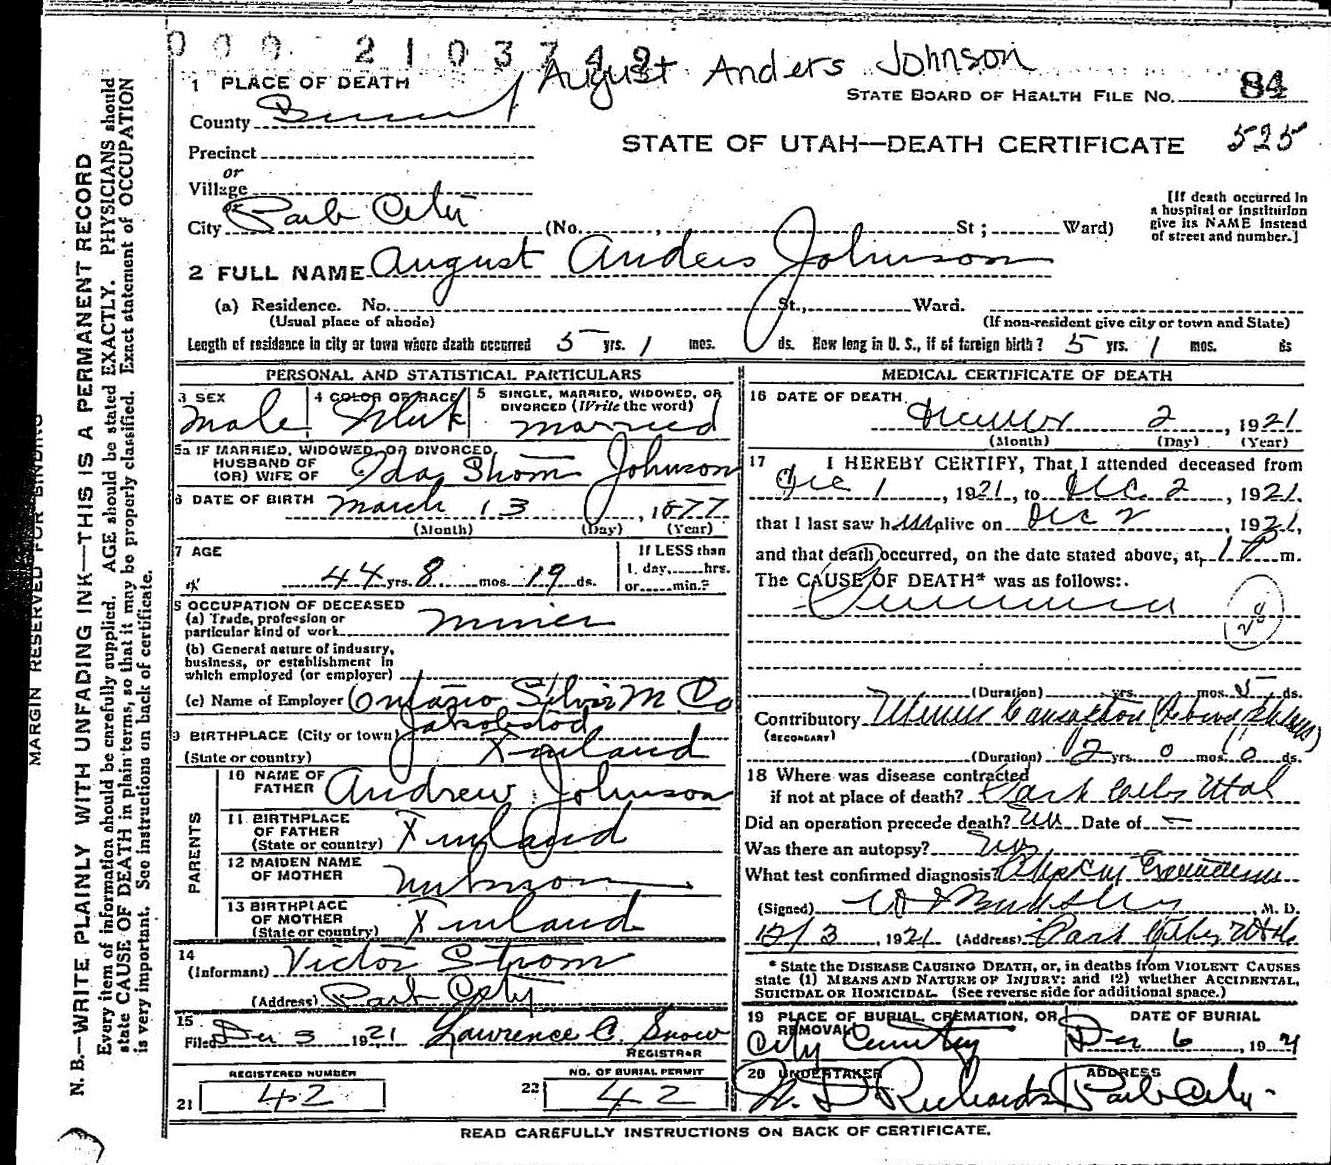 000 2103749
August Anders Johnson
1 PLACE OF DEATH
STATE BOARD OF HEALTH FILE NO. 84
County
STATE OF UTAH—DEATH CERTIFICATE 525
Precinct
or
Village
[If death occurred in
a hospital or institution
give its NAME instead
of street and number.]
City Park City (No. , St ; Ward)
2 FULL NAME August Anders Johnson
(a) Residence. No. St., Ward.
(Usual place of abode) (If non-resident give city or town and State)
Length of residence in city or town where death occurred 5 yrs. 1 mos. ds. How long in U. S., if of foreign birth? 5 yrs. 1 mos. ds
PERSONAL AND STATISTICAL PARTICULARS
3 SEX
male
4 COLOR OR RACE
5 SINGLE, MARRIED, WIDOWED, OR
DIVORCED (Write the word)
married
5a IF MARRIED, WIDOWED, OR DIVORCED
HUSBAND OF
(OR) WIFE OF Ida Strom Johnson
6 DATE OF BIRTH March 13, 1877
(Month) (Day) (Year)
7 AGE
44 yrs. 8 mos. 19 ds.
If LESS than
1. day, hrs.
or min.?
8 OCCUPATION OF DECEASED
(a) Trade, profession or
particular kind of work miner
(b) General nature of industry,
business, or establishment in
which employed (or employer)
(c) Name of Employer Ontario Silver M. Co
9 BIRTHPLACE (City or town) Jakobstod
(State or country) Finland
PARENTS
10 NAME OF
FATHER Andrew Johnson
11 BIRTHPLACE
OF FATHER
(State or country) Finland
12 MAIDEN NAME
OF MOTHER unknown
13 BIRTHPLACE
OF MOTHER
(State or country) Finland
14
(Informant) Victor Strom
(Address) Park City
15
Filed Dec 3 1921 Lawrence C. Snow
REGISTRAR
REGISTERED NUMBER
21 42
NO. OF BURIAL PERMIT
22 42
MEDICAL CERTIFICATE OF DEATH
16 DATE OF DEATH December 2, 1921
(Month) (Day) (Year)
17 I HEREBY CERTIFY, That I attended deceased from
Dec 1, 1921, to Dec 2, 1921.
that I last saw him alive on Dec 2, 1921,
and that death occurred, on the date stated above, at 1 P m.
The CAUSE OF DEATH* was as follows:
Pneumonia
(Duration) yrs. mos. 5 ds.
Contributory Miners Consumption
(SECONDARY)
(Duration) 2 yrs. 0 mos. 0 ds.
18 Where was disease contracted
if not at place of death? Park City Utah
Did an operation precede death? No Date of —
Was there an autopsy? No
What test confirmed diagnosis?
(Signed) M. D.
12/3, 1921 (Address) Park City Utah
* State the DISEASE CAUSING DEATH, or, in deaths from VIOLENT CAUSES
state (1) MEANS AND NATURE OF INJURY; and (2) whether ACCIDENTAL,
SUICIDAL OR HOMICIDAL. (See reverse side for additional space.)
19 PLACE OF BURIAL, CREMATION, OR
REMOVAL
City Cemetery
DATE OF BURIAL
Dec 6, 1921
20 UNDERTAKER
Richards
ADDRESS
Park City.
READ CAREFULLY INSTRUCTIONS ON BACK OF CERTIFICATE.
MARGIN RESERVED FOR BINDING
N. B.—WRITE PLAINLY WITH UNFADING INK—THIS IS A PERMANENT RECORD
Every item of information should be carefully supplied. AGE should be stated EXACTLY. PHYSICIANS should
state CAUSE OF DEATH in plain terms, so that it may be properly classified. Exact statement of OCCUPATION
is very important. See instructions on back of certificate.